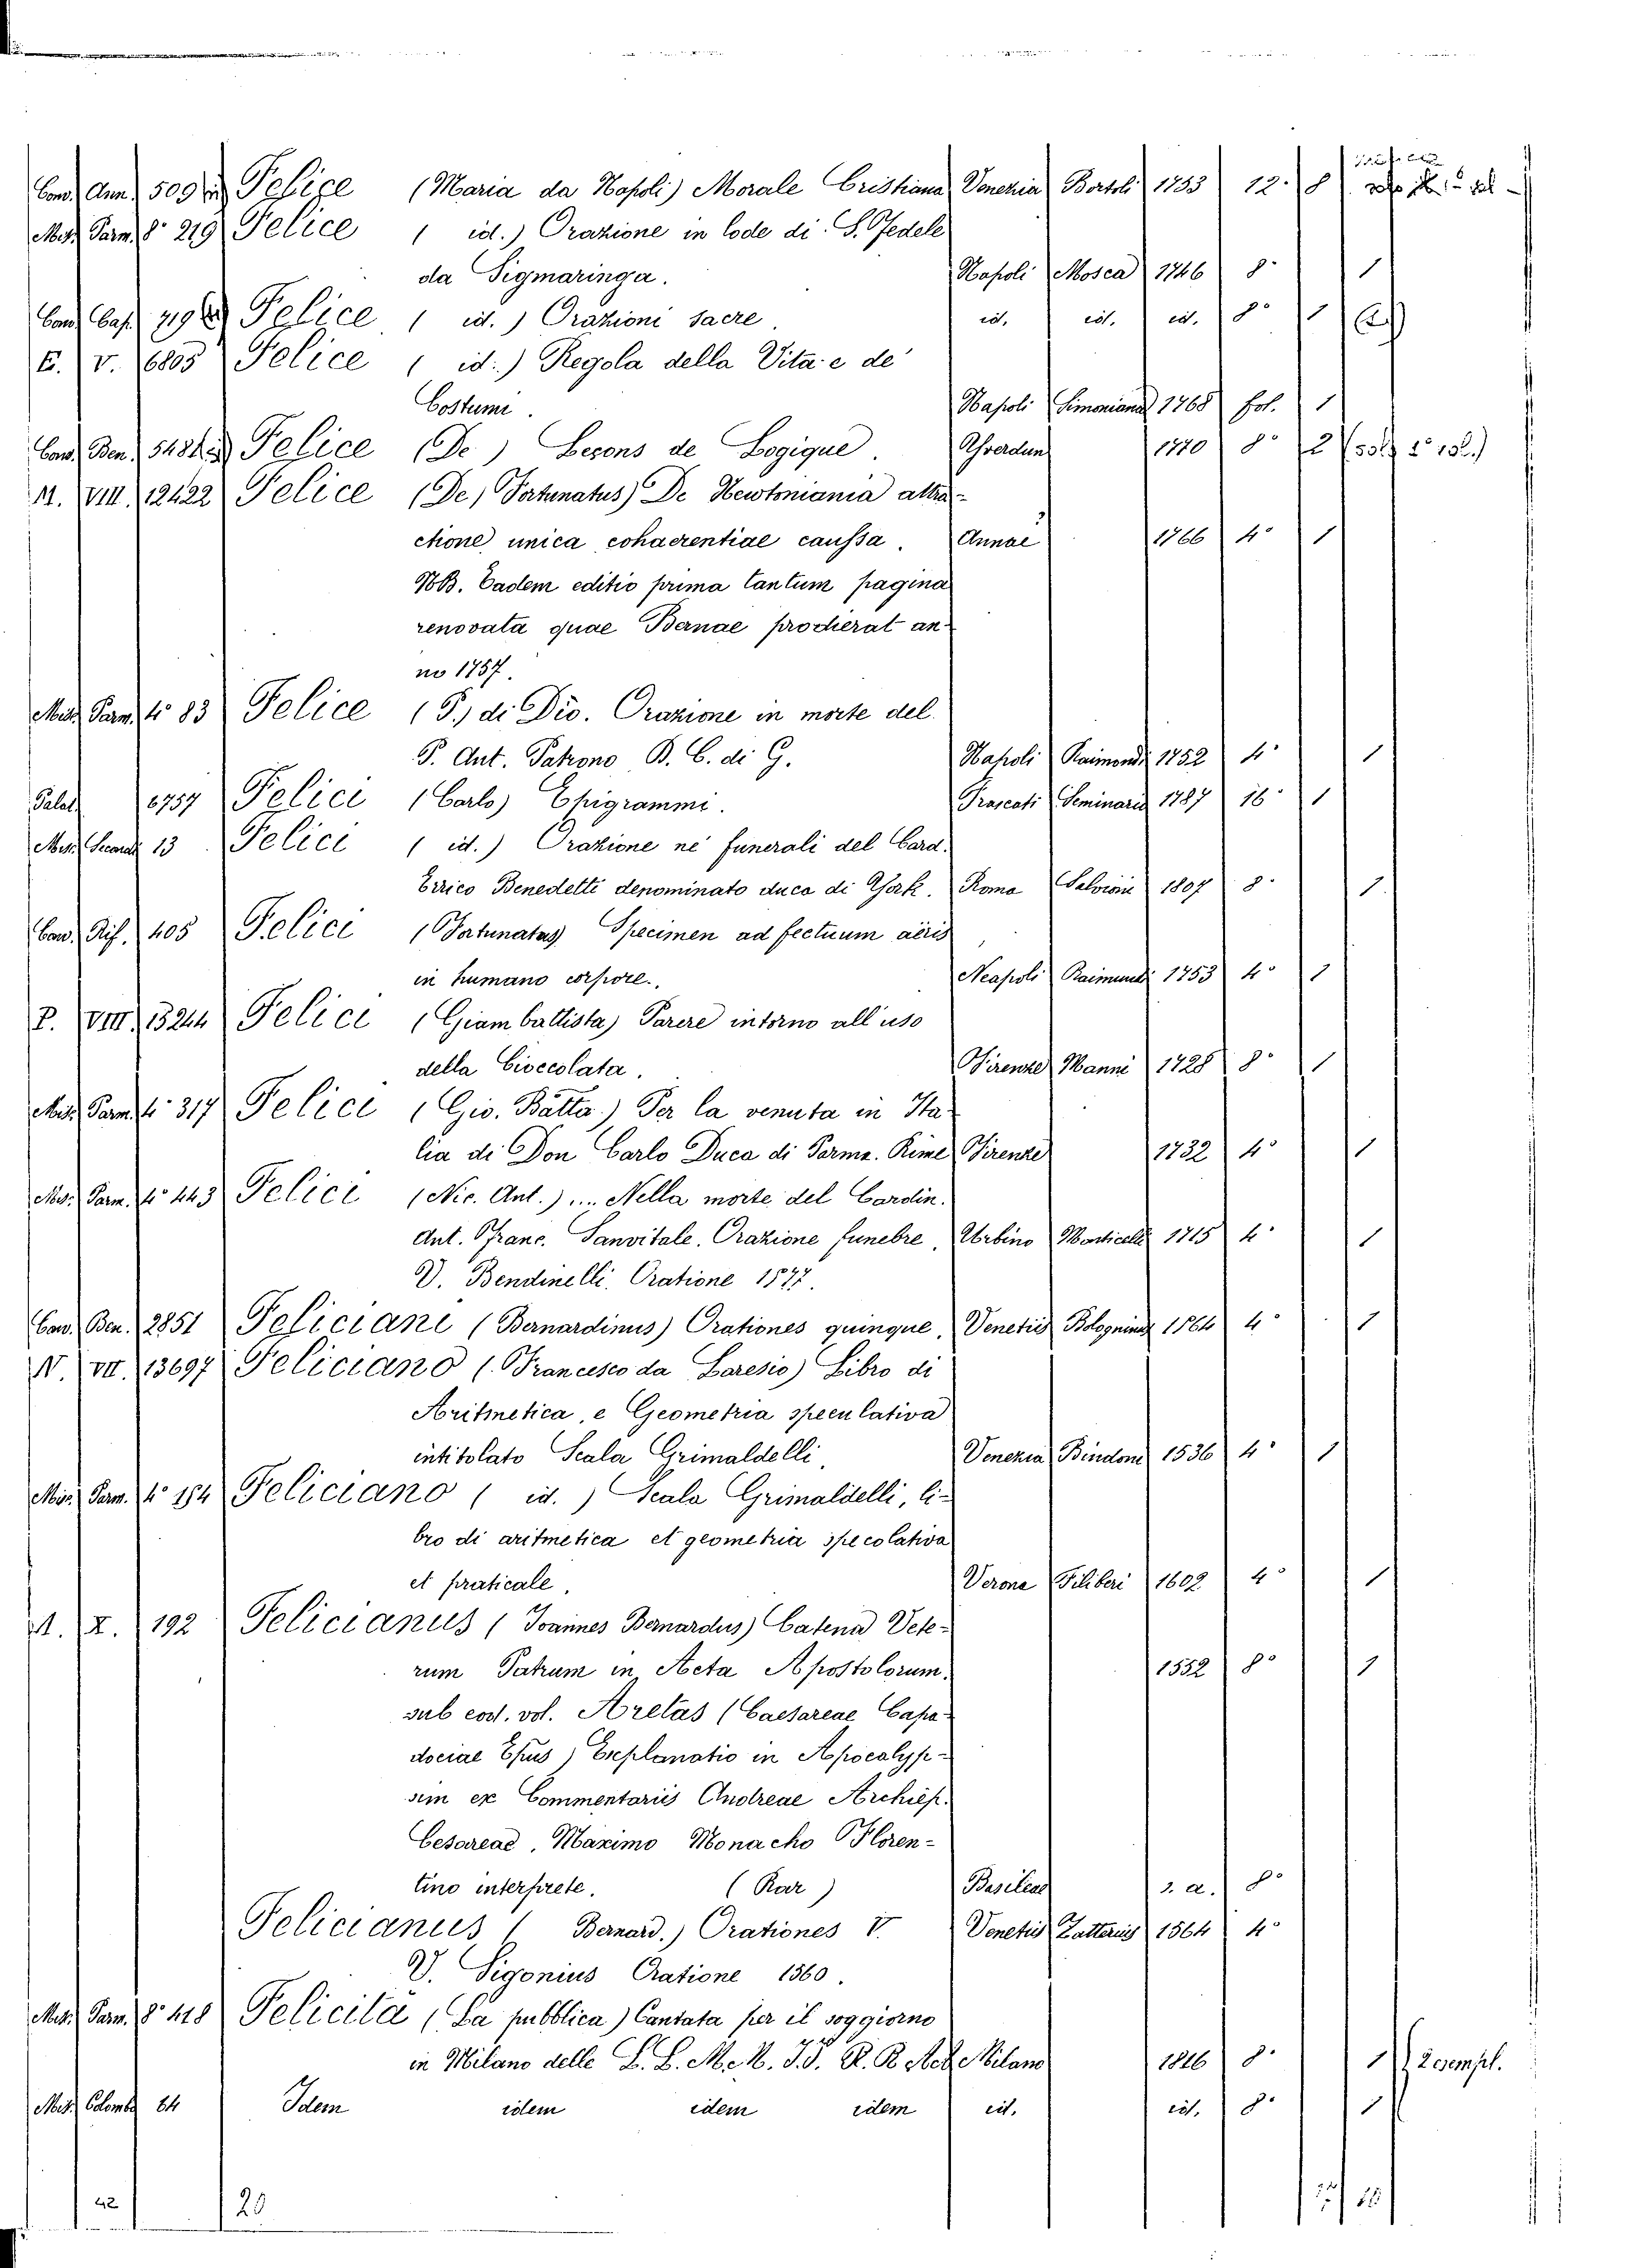 Felice (Maria da Napoli) Morale Cristiana Venezia Bortoli 1733 12. 8
Mis. Parm. 8º 219 Felice ( id. ) Orazione in lode di S. Fedele
da Sigmaringa. Napoli Mosca 1746 8º 1
Felice ( id. ) Orazioni sacre. id. id. id. 8º 1
E. V. 6805 Felice ( id. ) Regola della Vita e de'
Costumi. Napoli Simoniana 1768 fol. 1
Felice (De ) Leçons de Logique. Yverdun 1770 8º 2
M. VIII. 12422 Felice (De, Fortunatus) De Newtoniania attra-
ctione unica cohaerentiae caussa. Annae 1766 4º 1
NB. Eadem editio prima tantum pagina
renovata quae Bernae prodierat an-
no 1757.
Mis. Parm. 4º 83 Felice (P.) di Dio. Orazione in morte del
P. Ant. Patrono B. C. di G. Napoli Raimondi 1752 4º 1
Palat. 6757 Felici (Carlo) Epigrammi. Frascati Seminario 1787 16º 1
13 Felici ( id. ) Orazione ne' funerali del Card.
Errico Benedetti denominato duca di York. Roma Salvioni 1807 8º 1
405 Felici (Fortunatus) Specimen ad fectuum aëris
in humano corpore. Neapoli Raimundi 1753 4º 1
P. VIII. 15244 Felici (Giambattista) Parere intorno all'uso
della Cioccolata. Firenze Manni 1728 8º 1
Mis. Parm. 4º 317 Felici (Gio. Batta.) Per la venuta in Ita-
lia di Don Carlo Duca di Parma. Rime Firenze 1732 4º 1
Mis. Parm. 4º 443 Felici (Nic. Ant.) ... Nella morte del Cardin.
Ant. Franc. Sanvitale. Orazione funebre, Urbino Monticelli 1715 4º 1
V. Bendinelli. Oratione 1577.
Ben. 2851 Feliciani (Bernardinus) Orationes quinque, Venetiis Bolognini 1564 4º 1
N. VII. 13697 Feliciano (Francesco da Laresio) Libro di
Aritmetica, e Geometria speculativa
intitolato Scala Grimaldelli, Venezia Bindoni 1536 4º 1
Mis. Parm. 4º 184 Feliciano ( id. ) Scala Grimaldelli, li-
bro di aritmetica et geometria specolativa
et praticale, Verona Filiberi 1602 4º 1
X. 192 Felicianus (Joannes Bernardus) Catena Vete-
rum Patrum in Acta Apostolorum. 1552 8º 1
sub eod. vol. Aretas (Caesareae Capa-
dociae Epus) Explanatio in Apocalyp-
sim ex Commentariis Andreae Archiep.
Cesareae, Maximo Monacho Floren-
tino interprete. (Rar ) Basileae s. a. 8º
Felicianus ( Bernard.) Orationes V. Venetiis Zatterius 1564 4º
V. Sigonius Oratione 1560.
Mis. Parm. 8º 418 Felicità (La pubblica) Cantata per il soggiorno
in Milano delle L. L. M. M. I. I. R. R. Ap.e Milano 1816 8º 1 2 esempl.
Mis. Colomb. 24 Idem idem idem idem id. id. 8º 1
42 20